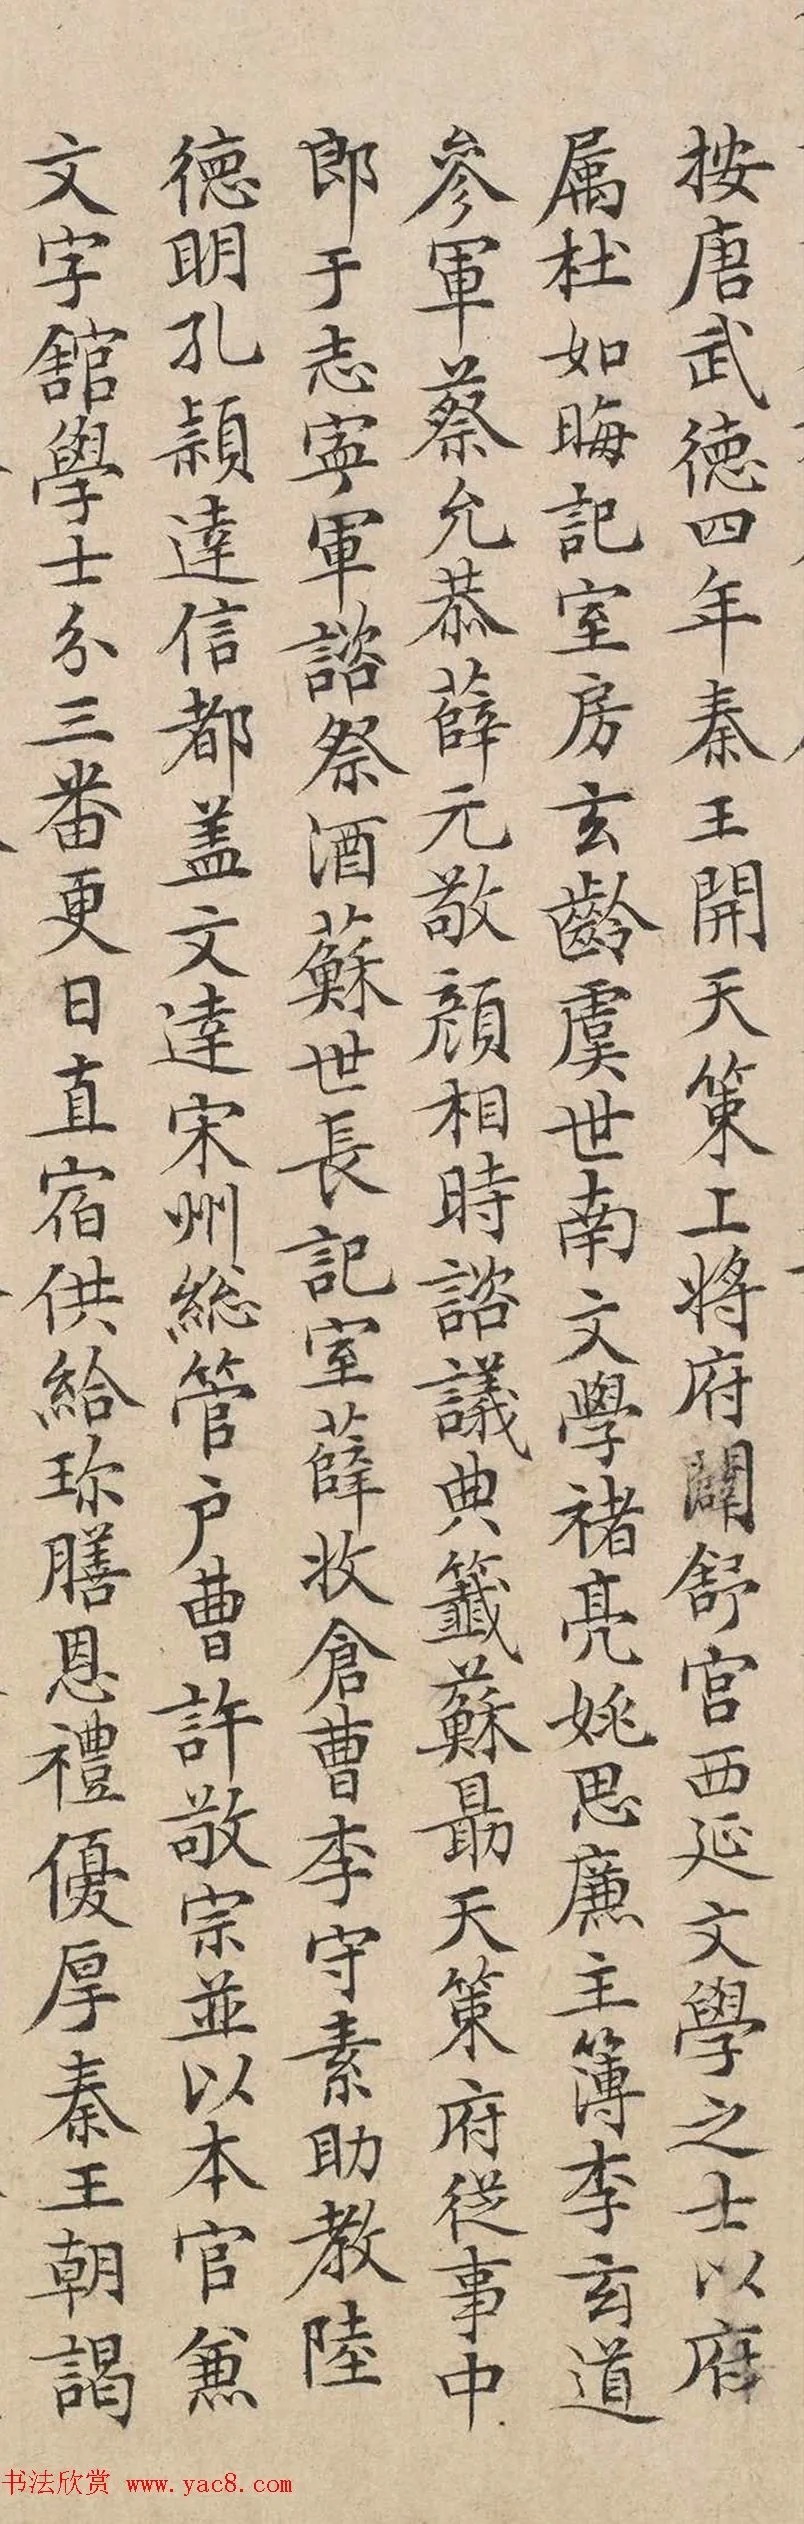 按唐武德四年秦王開天策上將府闢舒宮西延文學之士以府
属杜如晦記室房玄齡虞世南文學褚亮姚思廉主簿李玄道
參軍蔡允恭薛元敬顏相時諮議典籤蘇勗天策府從事中
郎于志寧軍諮祭酒蘇世長記室薛收倉曹李守素助教陸
德明孔穎達信都盖文達宋州総管户曹許敬宗並以本官兼
文字舘學士分三番更日直宿供給珎膳恩禮優厚秦王朝謁
书法欣赏 www.yac8.com